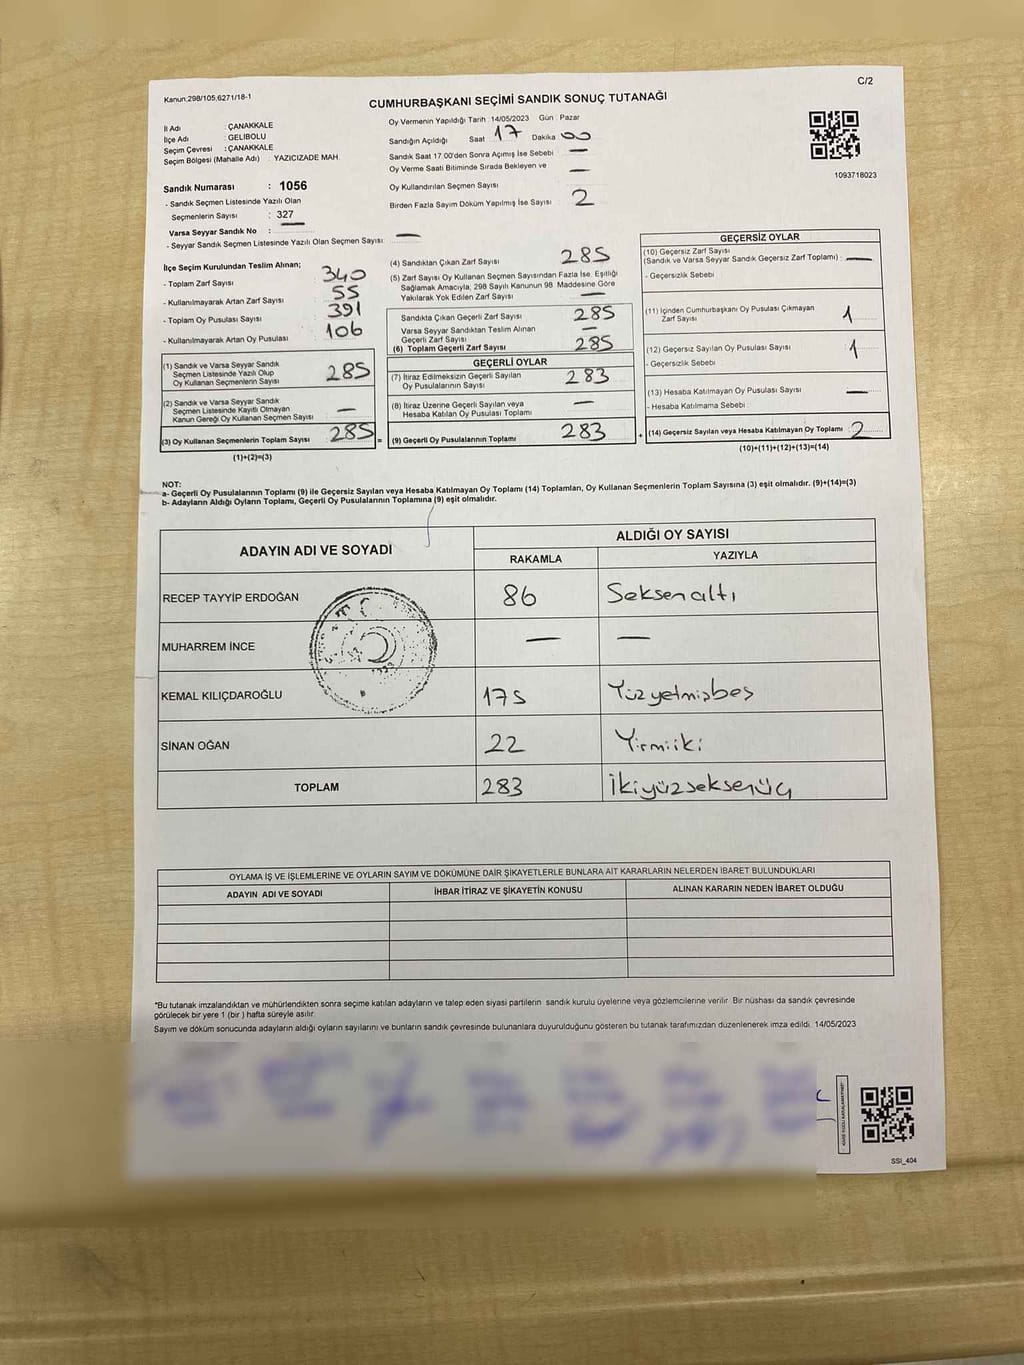 C/2
Kanun:298/105,6271/18-1
CUMHURBAŞKANI SEÇİMİ SANDIK SONUÇ TUTANAĞI
İl Adı : ÇANAKKALE
İlçe Adı : GELİBOLU
Seçim Çevresi : ÇANAKKALE
Seçim Bölgesi (Mahalle Adı) : YAZICIZADE MAH.
Sandık Numarası : 1056
- Sandık Seçmen Listesinde Yazılı Olan
Seçmenlerin Sayısı : 327
Varsa Seyyar Sandık No : —
- Seyyar Sandık Seçmen Listesinde Yazılı Olan Seçmen Sayısı: —
Oy Vermenin Yapıldığı Tarih : 14/05/2023 Gün : Pazar
Sandığın Açıldığı Saat 17 Dakika 00
Sandık Saat 17:00'den Sonra Açımış İse Sebebi —
Oy Verme Saati Bitiminde Sırada Bekleyen ve —
Oy Kullandırılan Seçmen Sayısı
Birden Fazla Sayım Döküm Yapılmış İse Sayısı 2
1093718023
İlçe Seçim Kurulundan Teslim Alınan;
- Toplam Zarf Sayısı : 340
- Kullanılmayarak Artan Zarf Sayısı : 55
- Toplam Oy Pusulası Sayısı : 391
- Kullanılmayarak Artan Oy Pusulası : 106
(1) Sandık ve Varsa Seyyar Sandık
Seçmen Listesinde Yazılı Olup
Oy Kullanan Seçmenlerin Sayısı : 285
(2) Sandık ve Varsa Seyyar Sandık
Seçmen Listesinde Kayıtlı Olmayan
Kanun Gereği Oy Kullanan Seçmen Sayısı : —
(3) Oy Kullanan Seçmenlerin Toplam Sayısı : 285 =
(1)+(2)=(3)
(4) Sandıktan Çıkan Zarf Sayısı : 285
(5) Zarf Sayısı Oy Kullanan Seçmen Sayısından Fazla İse, Eşitliği
Sağlamak Amacıyla, 298 Sayılı Kanunun 98. Maddesine Göre
Yakılarak Yok Edilen Zarf Sayısı : —
Sandıkta Çıkan Geçerli Zarf Sayısı : 285
Varsa Seyyar Sandıktan Teslim Alınan
Geçerli Zarf Sayısı : —
(6) Toplam Geçerli Zarf Sayısı : 285
GEÇERLİ OYLAR
(7) İtiraz Edilmeksizin Geçerli Sayılan
Oy Pusulalarının Sayısı : 283
(8) İtiraz Üzerine Geçerli Sayılan veya
Hesaba Katılan Oy Pusulası Toplamı : —
(9) Geçerli Oy Pusulalarının Toplamı : 283 +
GEÇERSİZ OYLAR
(10) Geçersiz Zarf Sayısı
(Sandık ve Varsa Seyyar Sandık Geçersiz Zarf Toplamı) : —
- Geçersizlik Sebebi :
(11) İçinden Cumhurbaşkanı Oy Pusulası Çıkmayan
Zarf Sayısı : 1
(12) Geçersiz Sayılan Oy Pusulası Sayısı : 1
- Geçersizlik Sebebi :
(13) Hesaba Katılmayan Oy Pusulası Sayısı : —
- Hesaba Katılmama Sebebi :
(14) Geçersiz Sayılan veya Hesaba Katılmayan Oy Toplamı : 2
(10)+(11)+(12)+(13)=(14)
NOT:
a- Geçerli Oy Pusulalarının Toplamı (9) ile Geçersiz Sayılan veya Hesaba Katılmayan Oy Toplamı (14) Toplamları, Oy Kullanan Seçmenlerin Toplam Sayısına (3) eşit olmalıdır. (9)+(14)=(3)
b- Adayların Aldığı Oyların Toplamı, Geçerli Oy Pusulalarının Toplamına (9) eşit olmalıdır.
ADAYIN ADI VE SOYADI
ALDIĞI OY SAYISI
RAKAMLA YAZIYLA
RECEP TAYYİP ERDOĞAN 86 Seksenaltı
MUHARREM İNCE — —
KEMAL KILIÇDAROĞLU 175 Yüzyetmişbeş
SİNAN OĞAN 22 Yirmiiki
TOPLAM 283 İkiyüzseksenüç
OYLAMA İŞ VE İŞLEMLERİNE VE OYLARIN SAYIM VE DÖKÜMÜNE DAİR ŞİKAYETLERLE BUNLARA AİT KARARLARIN NELERDEN İBARET BULUNDUKLARI
ADAYIN ADI VE SOYADI İHBAR İTİRAZ VE ŞİKAYETİN KONUSU ALINAN KARARIN NEDEN İBARET OLDUĞU
*Bu tutanak imzalandıktan ve mühürlendikten sonra seçime katılan adayların ve talep eden siyasi partilerin sandık kurulu üyelerine veya gözlemcilerine verilir. Bir nüshası da sandık çevresinde
görülecek bir yere 1 (bir ) hafta süreyle asılır.
Sayım ve döküm sonucunda adayların aldığı oyların sayılarını ve bunların sandık çevresinde bulunanlara duyurulduğunu gösteren bu tutanak tarafımızdan düzenlenerek imza edildi. 14/05/2023
SSI_404